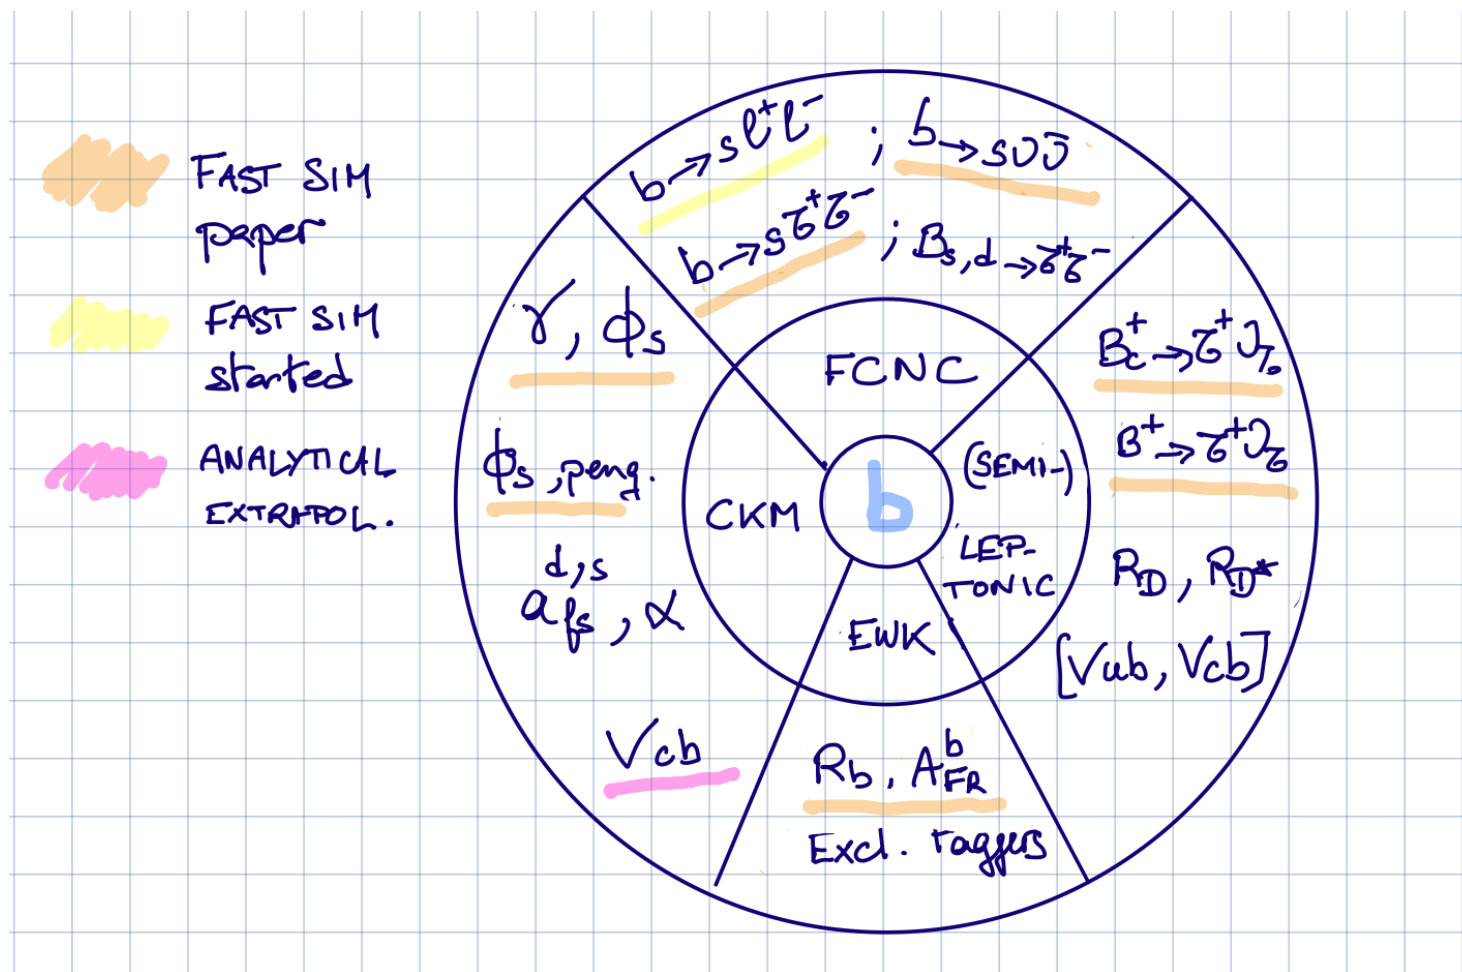 FAST SIM
paper
FAST SIM
started
ANALYTICAL
EXTRAPOL.
b→sl⁺l⁻ ; b→sνν̄
b→sτ⁺τ⁻ ; B_{s,d}→τ⁺τ⁻
FCNC
γ, ϕ_s
ϕ_s, peng.
d,s
a_{fs}, α
V_{cb}
CKM
b
(SEMI-)
LEP-
TONIC
B_c⁺→τ⁺ν_τ
B⁺→τ⁺ν_τ
R_D, R_{D*}
[V_{ub}, V_{cb}]
EWK
R_b, A^b_{FB}
Excl. taggers